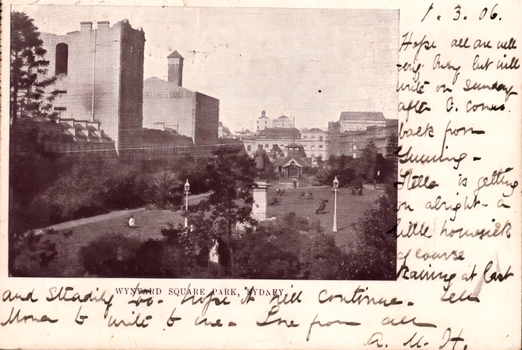 1. 3. 06.
Hope all are well
very busy but will
write on Sunday
after O. comes
back from
Gunning -
Stella is getting
on alright - a
little homesick
of course
Raining at last
WYNYARD SQUARE PARK, SYDNEY.
and steadily too. Hope it will continue. Tell
Mona to write to me. Love from all
A. M. H.